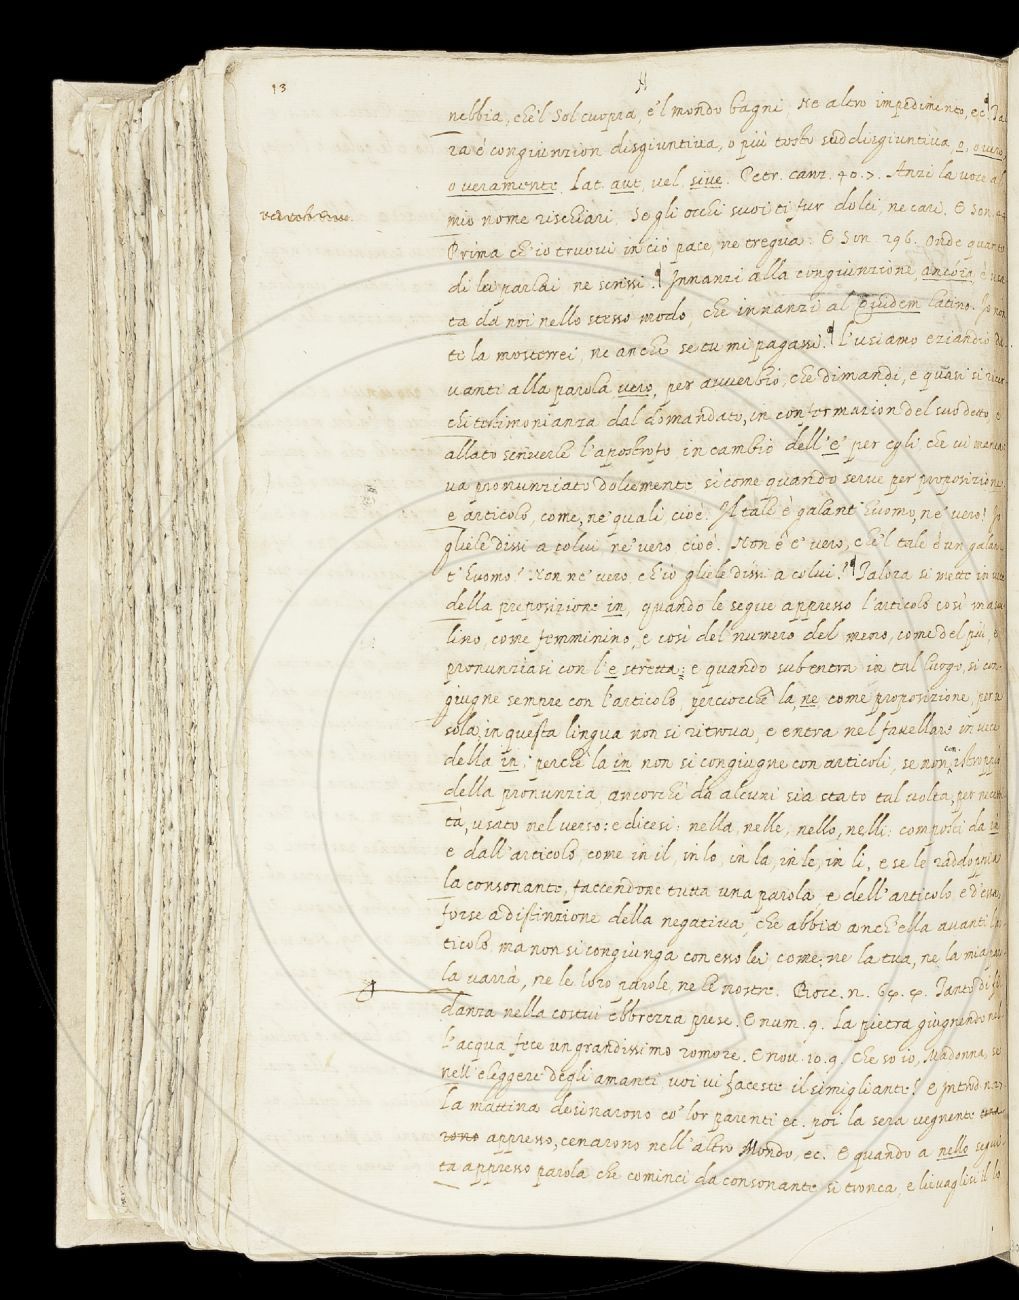 13
N
nebbia, che'l Sol cuopra, e'l mondo bagni, Ne altro impedimento, ec. Ta
ra è congiunzion disgiuntiva, o più tosto suddisgiuntiva, o, overo,
o veramente, Lat. aut, vel, sive. Petr. canz. 40. 7. Anzi la voce al
mio nome rischiari, Se gli occhi suoi ti fur dolci, ne cari. E Son. 44
Prima ch'io truovi in ciò pace, ne tregua: E Son. 296. Onde quanto
di lei parlai, ne scrissi. Innanzi alla congiunzione, ancora, è usa
ta da noi nello stesso modo, che innanzi al Quidem latino. Io non
te la mosterrei, ne anche se tu mi pagassi. L'usiamo eziandio da
vanti alla parola vero, per avverbio, che dimandi, e quasi si ricer
chi testimonianza dal domandato, in confermazion del suo detto, e
allato scriverle l'apostrofo, in cambio dell'e' per egli, che vi manca
va pronunziato dolcemente si come quando serve per proposizione
e articolo, come, ne' quali, cioè. Il tale è galant' huomo, ne' vero? Io
gliele dissi a colui, ne' vero cioè. Non è e' vero, che'l tale è un galan
t' huomo? Non ne' vero, ch'io gliele dissi a colui? Talora si mette in vece
della preposizione in, quando le segue appresso l'articolo così mascu
lino, come femminino, e così del numero del meno, come del più, e
pronunziasi con l'e stretta: e quando subentra in tal luogo, si con
giugne sempre con l'articolo, perciocchè la, ne, come proposizione, per se
sola, in questa lingua non si ritrova, e entra nel favellare in vece
della in: perchè la in non si congiugne con articoli, se non con istroppio
della pronunzia, ancorchè da alcuni sia stato tal volta, per necessi
tà, usato nel verso: e dicesi: nella, nelle, nello, nelli: composti da in
e dall'articolo, come in il, in lo, in la, in le, in li, e se le raddoppia
la consonante, faccendone tutta una parola, e dell'articolo, e d'essa,
forse a distinzione della negativa, che abbia anch'ella avanti l'ar
ticolo, ma non si congiunga con esso lei, come, ne la tua, ne la mia par
la varrà, ne le loro parole, ne le nostre. Bocc. n. 64. 4. Tanto di fi
danza nella costui ebbrezza prese. E num. 9. La pietra giugnendo nel
l'acqua fece un grandissimo romore. E nov. 10. 9. Che so io, Madonna, se
nell'eleggere degli amanti, voi vi faceste il simigliante? E Introd. n.
La mattina desinarono co' lor parenti ec. poi la sera vegnente
rono appresso, cenarono nell'altro Mondo, ec. E quando a nello segui
ta appresso parola che cominci da consonante si tronca, e lievaglisi il lo